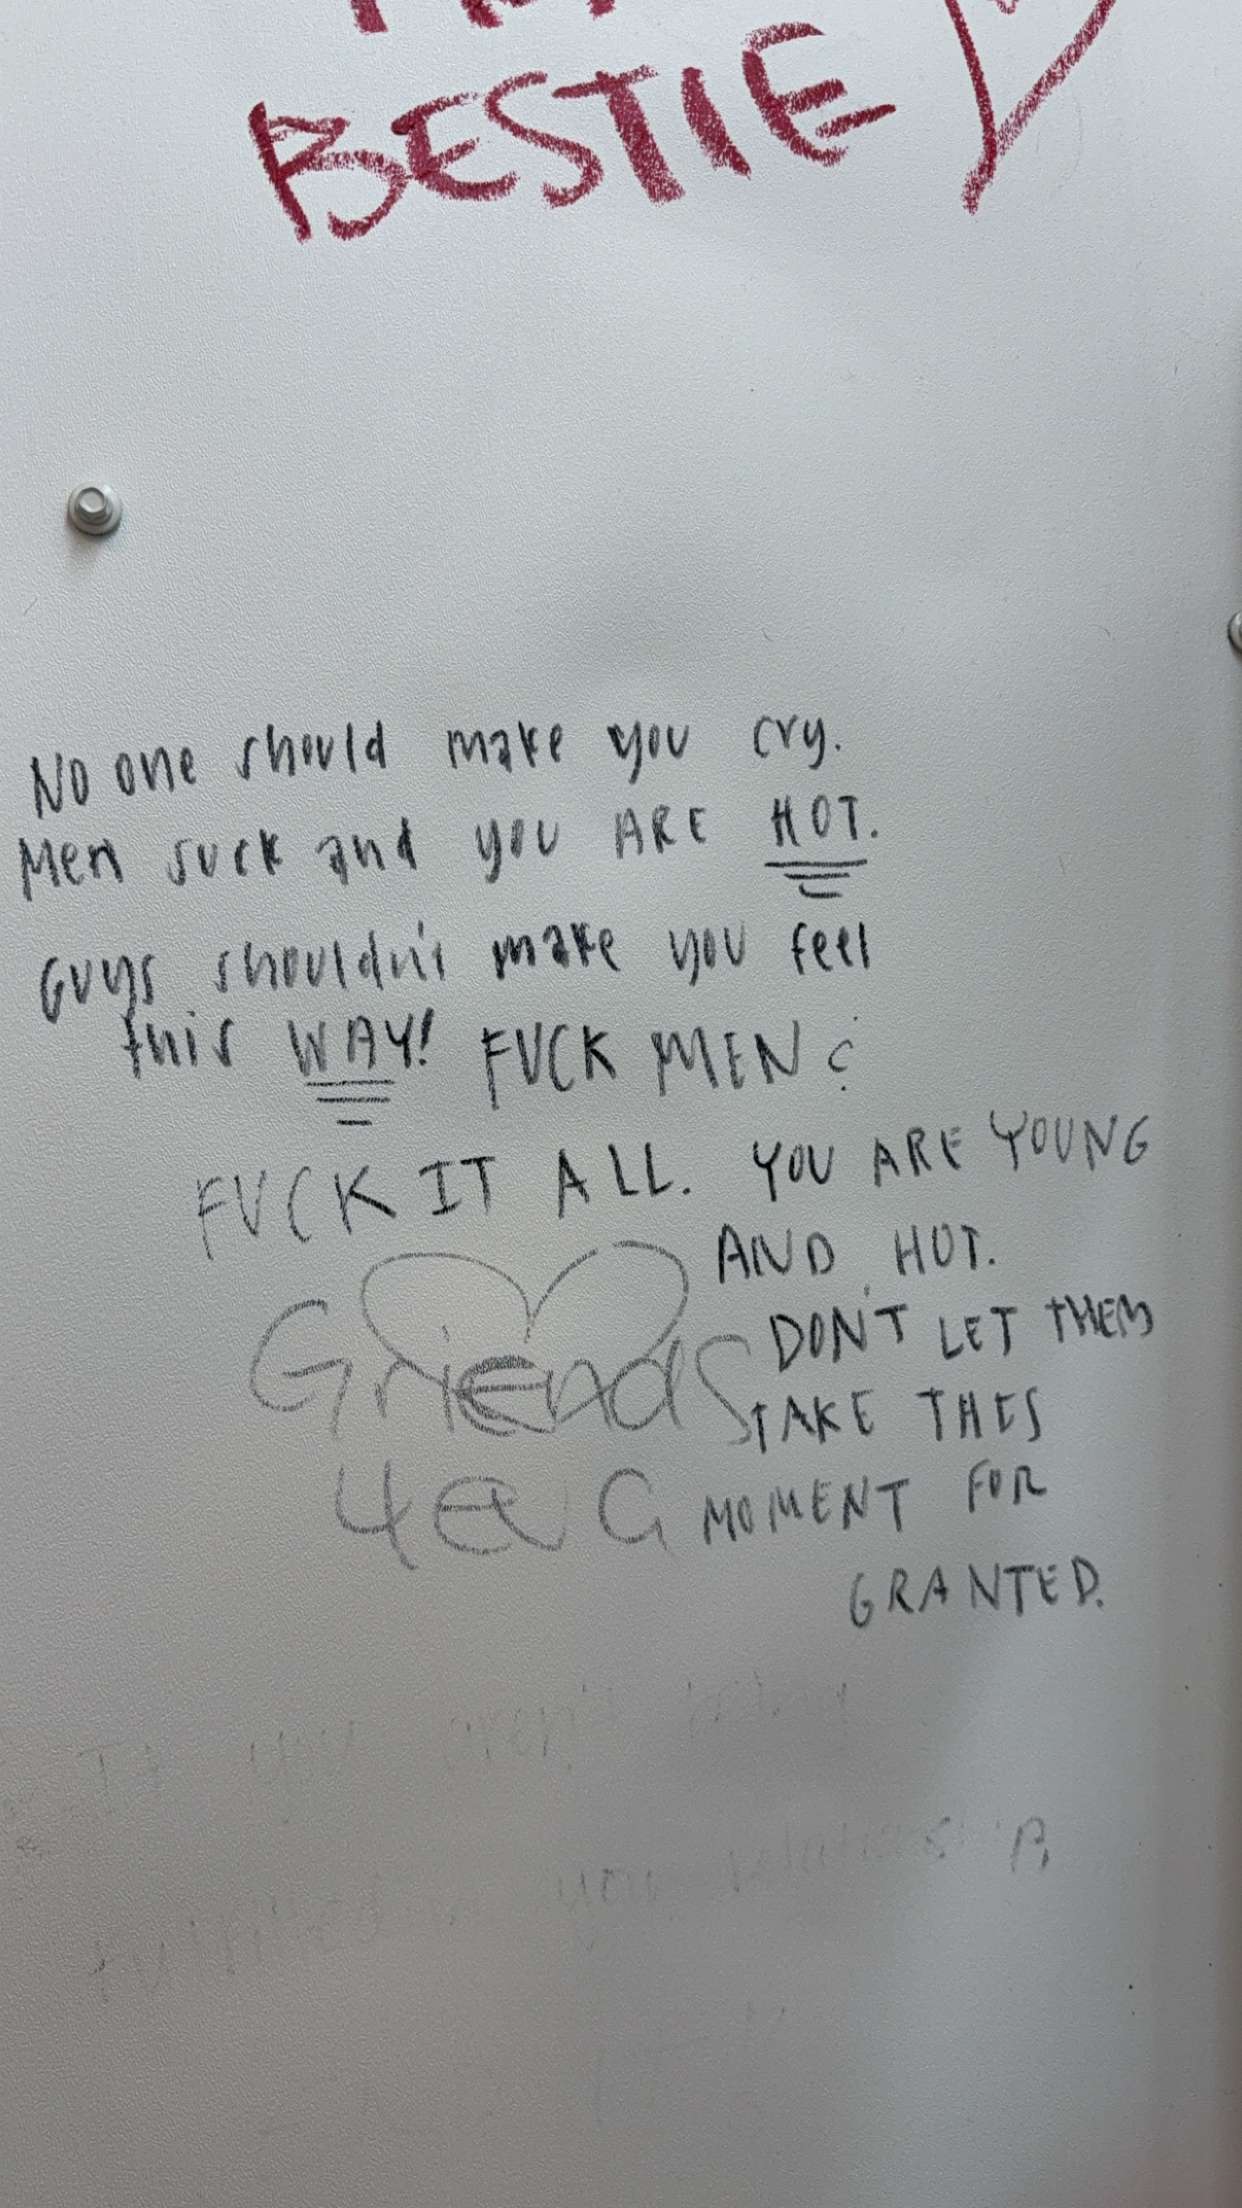 BESTIE
No one should make you cry.
Men suck and you ARE HOT.
Guys shouldn't make you feel
this WAY! FUCK MEN
FUCK IT ALL. YOU ARE YOUNG
AND HOT.
DON'T LET THEM
TAKE THIS
MOMENT FOR
GRANTED.
Griends
4eva
If you aren't
your